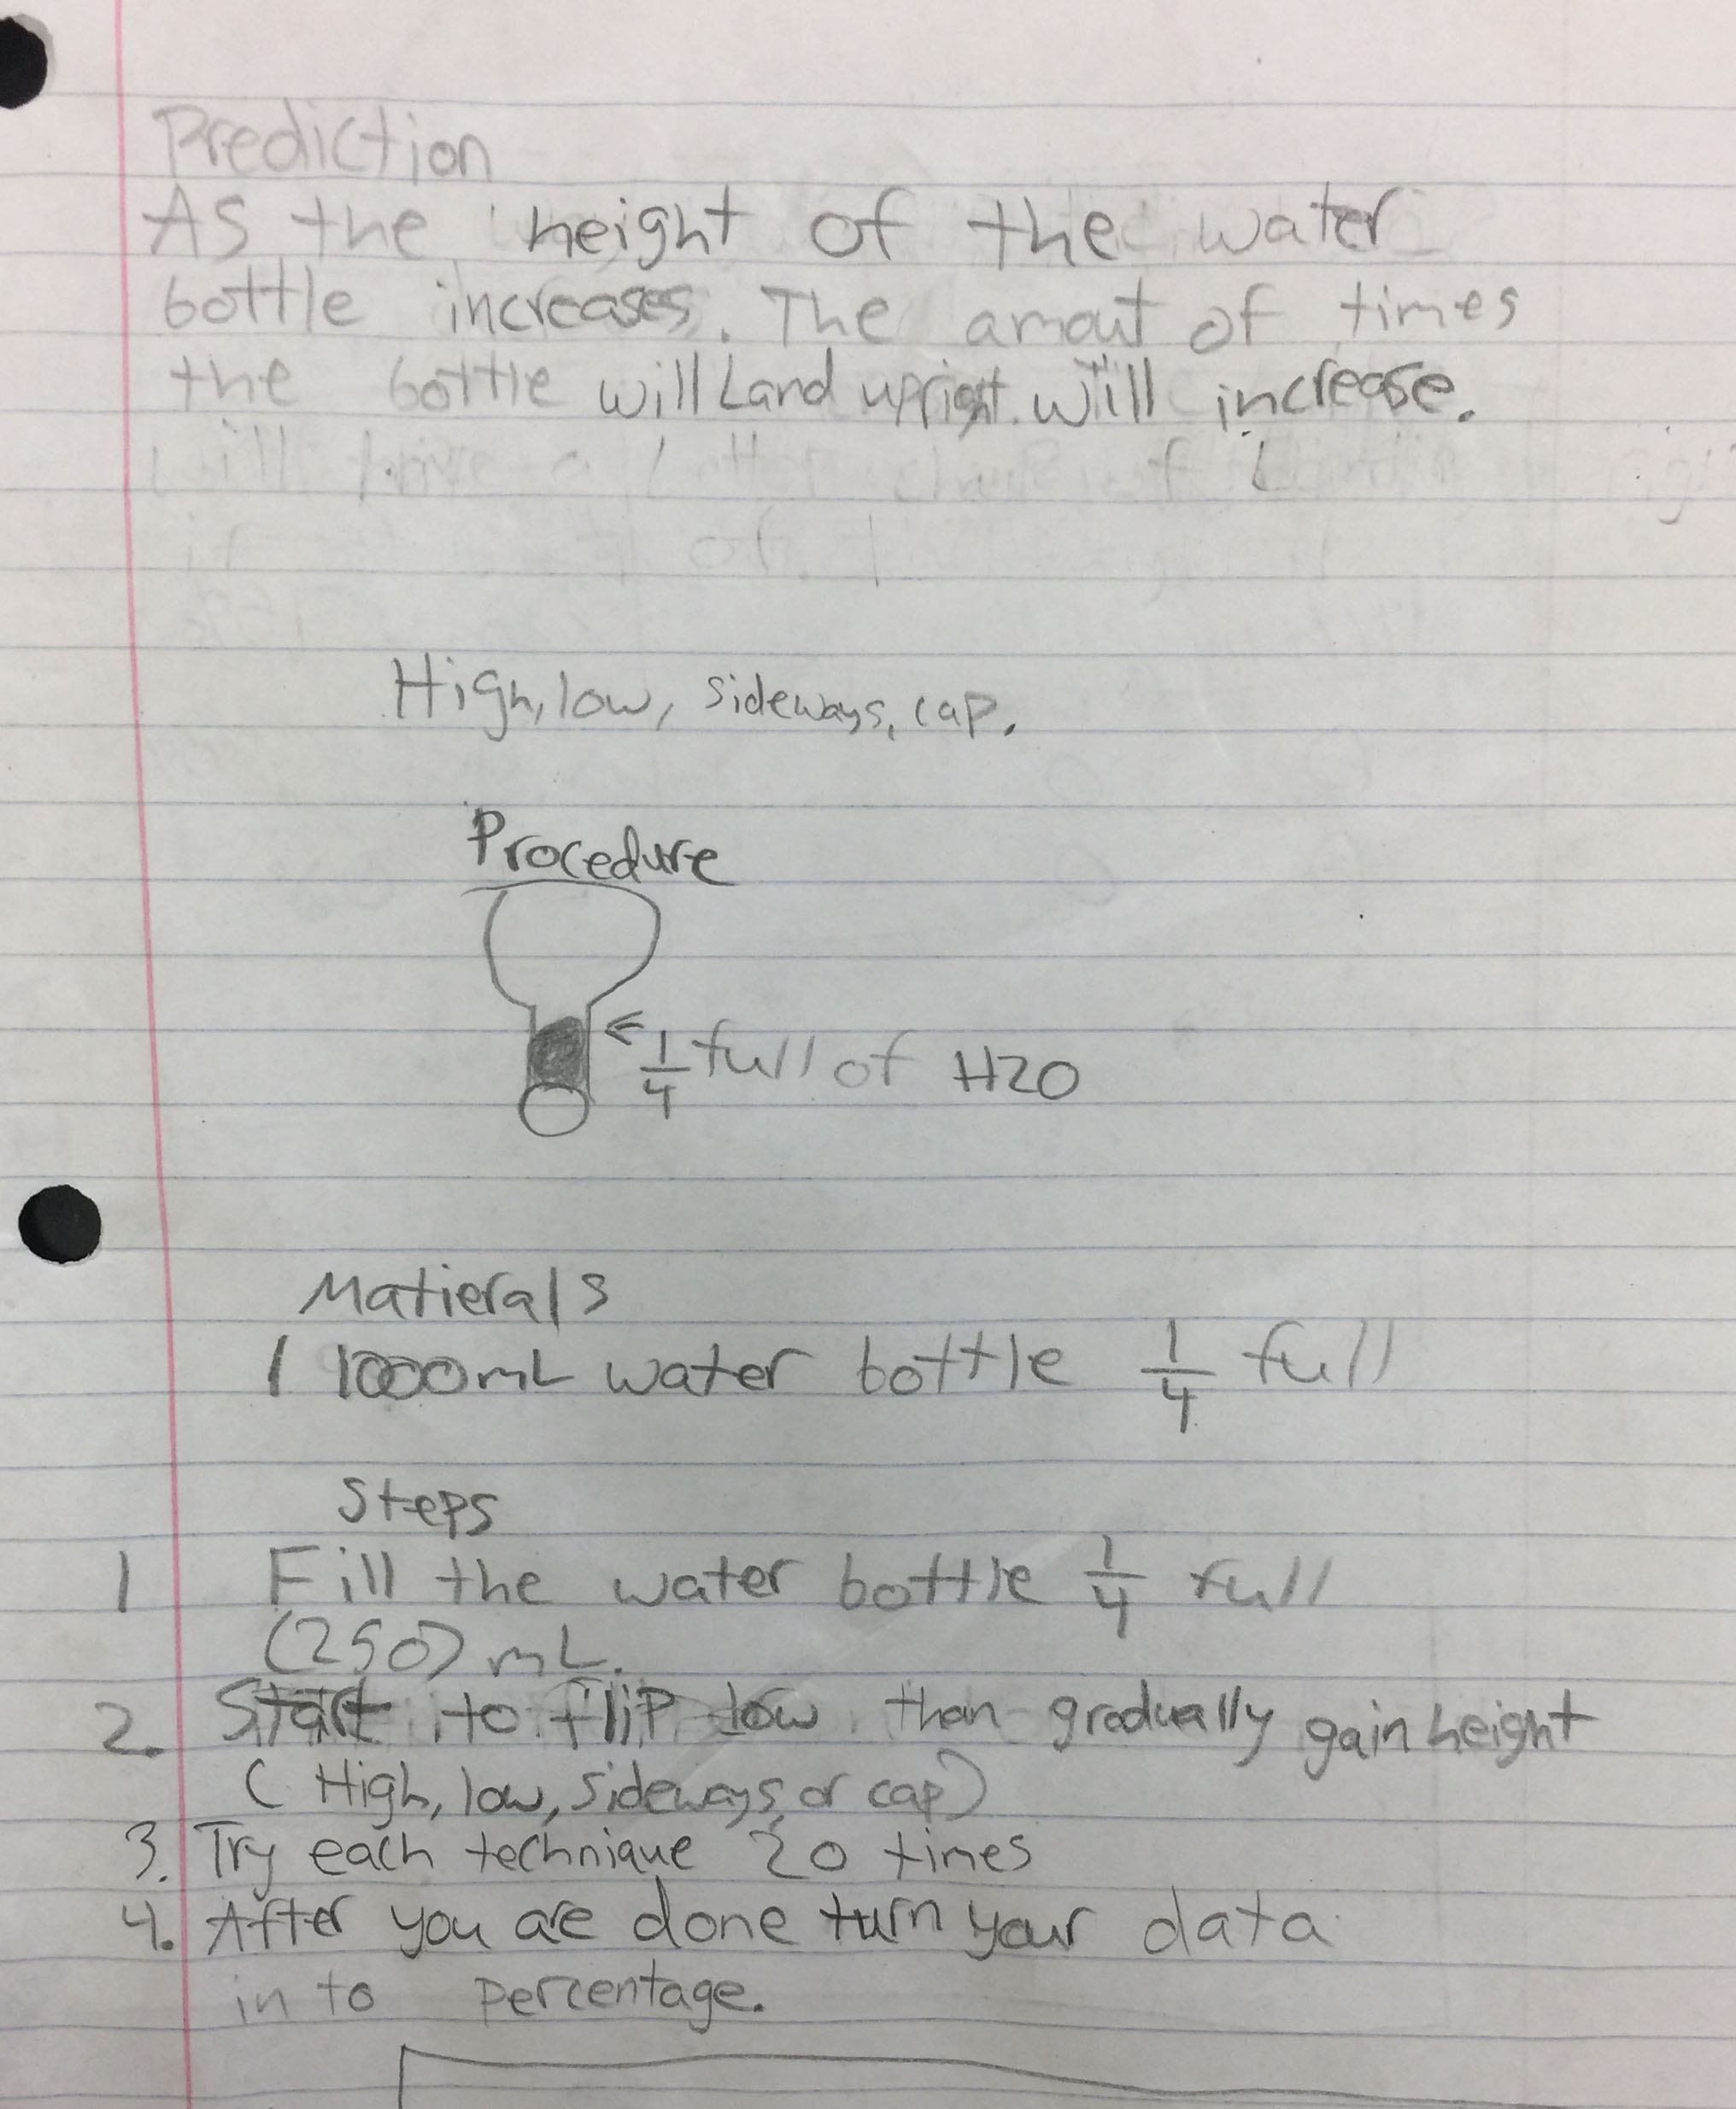 Prediction
As the height of the water
bottle increases. The amout of times
the bottle will Land upright will increase.
High, low, sideways, cap.
Procedure
1/4 full of H2O
Matierals
1 1000mL water bottle 1/4 full
Steps
1 Fill the water bottle 1/4 full
(250) mL.
2. Start to flip low than gradually gain height
( High, low, sideways, or cap)
3. Try each technique 20 times
4. After you are done turn your data
in to percentage.